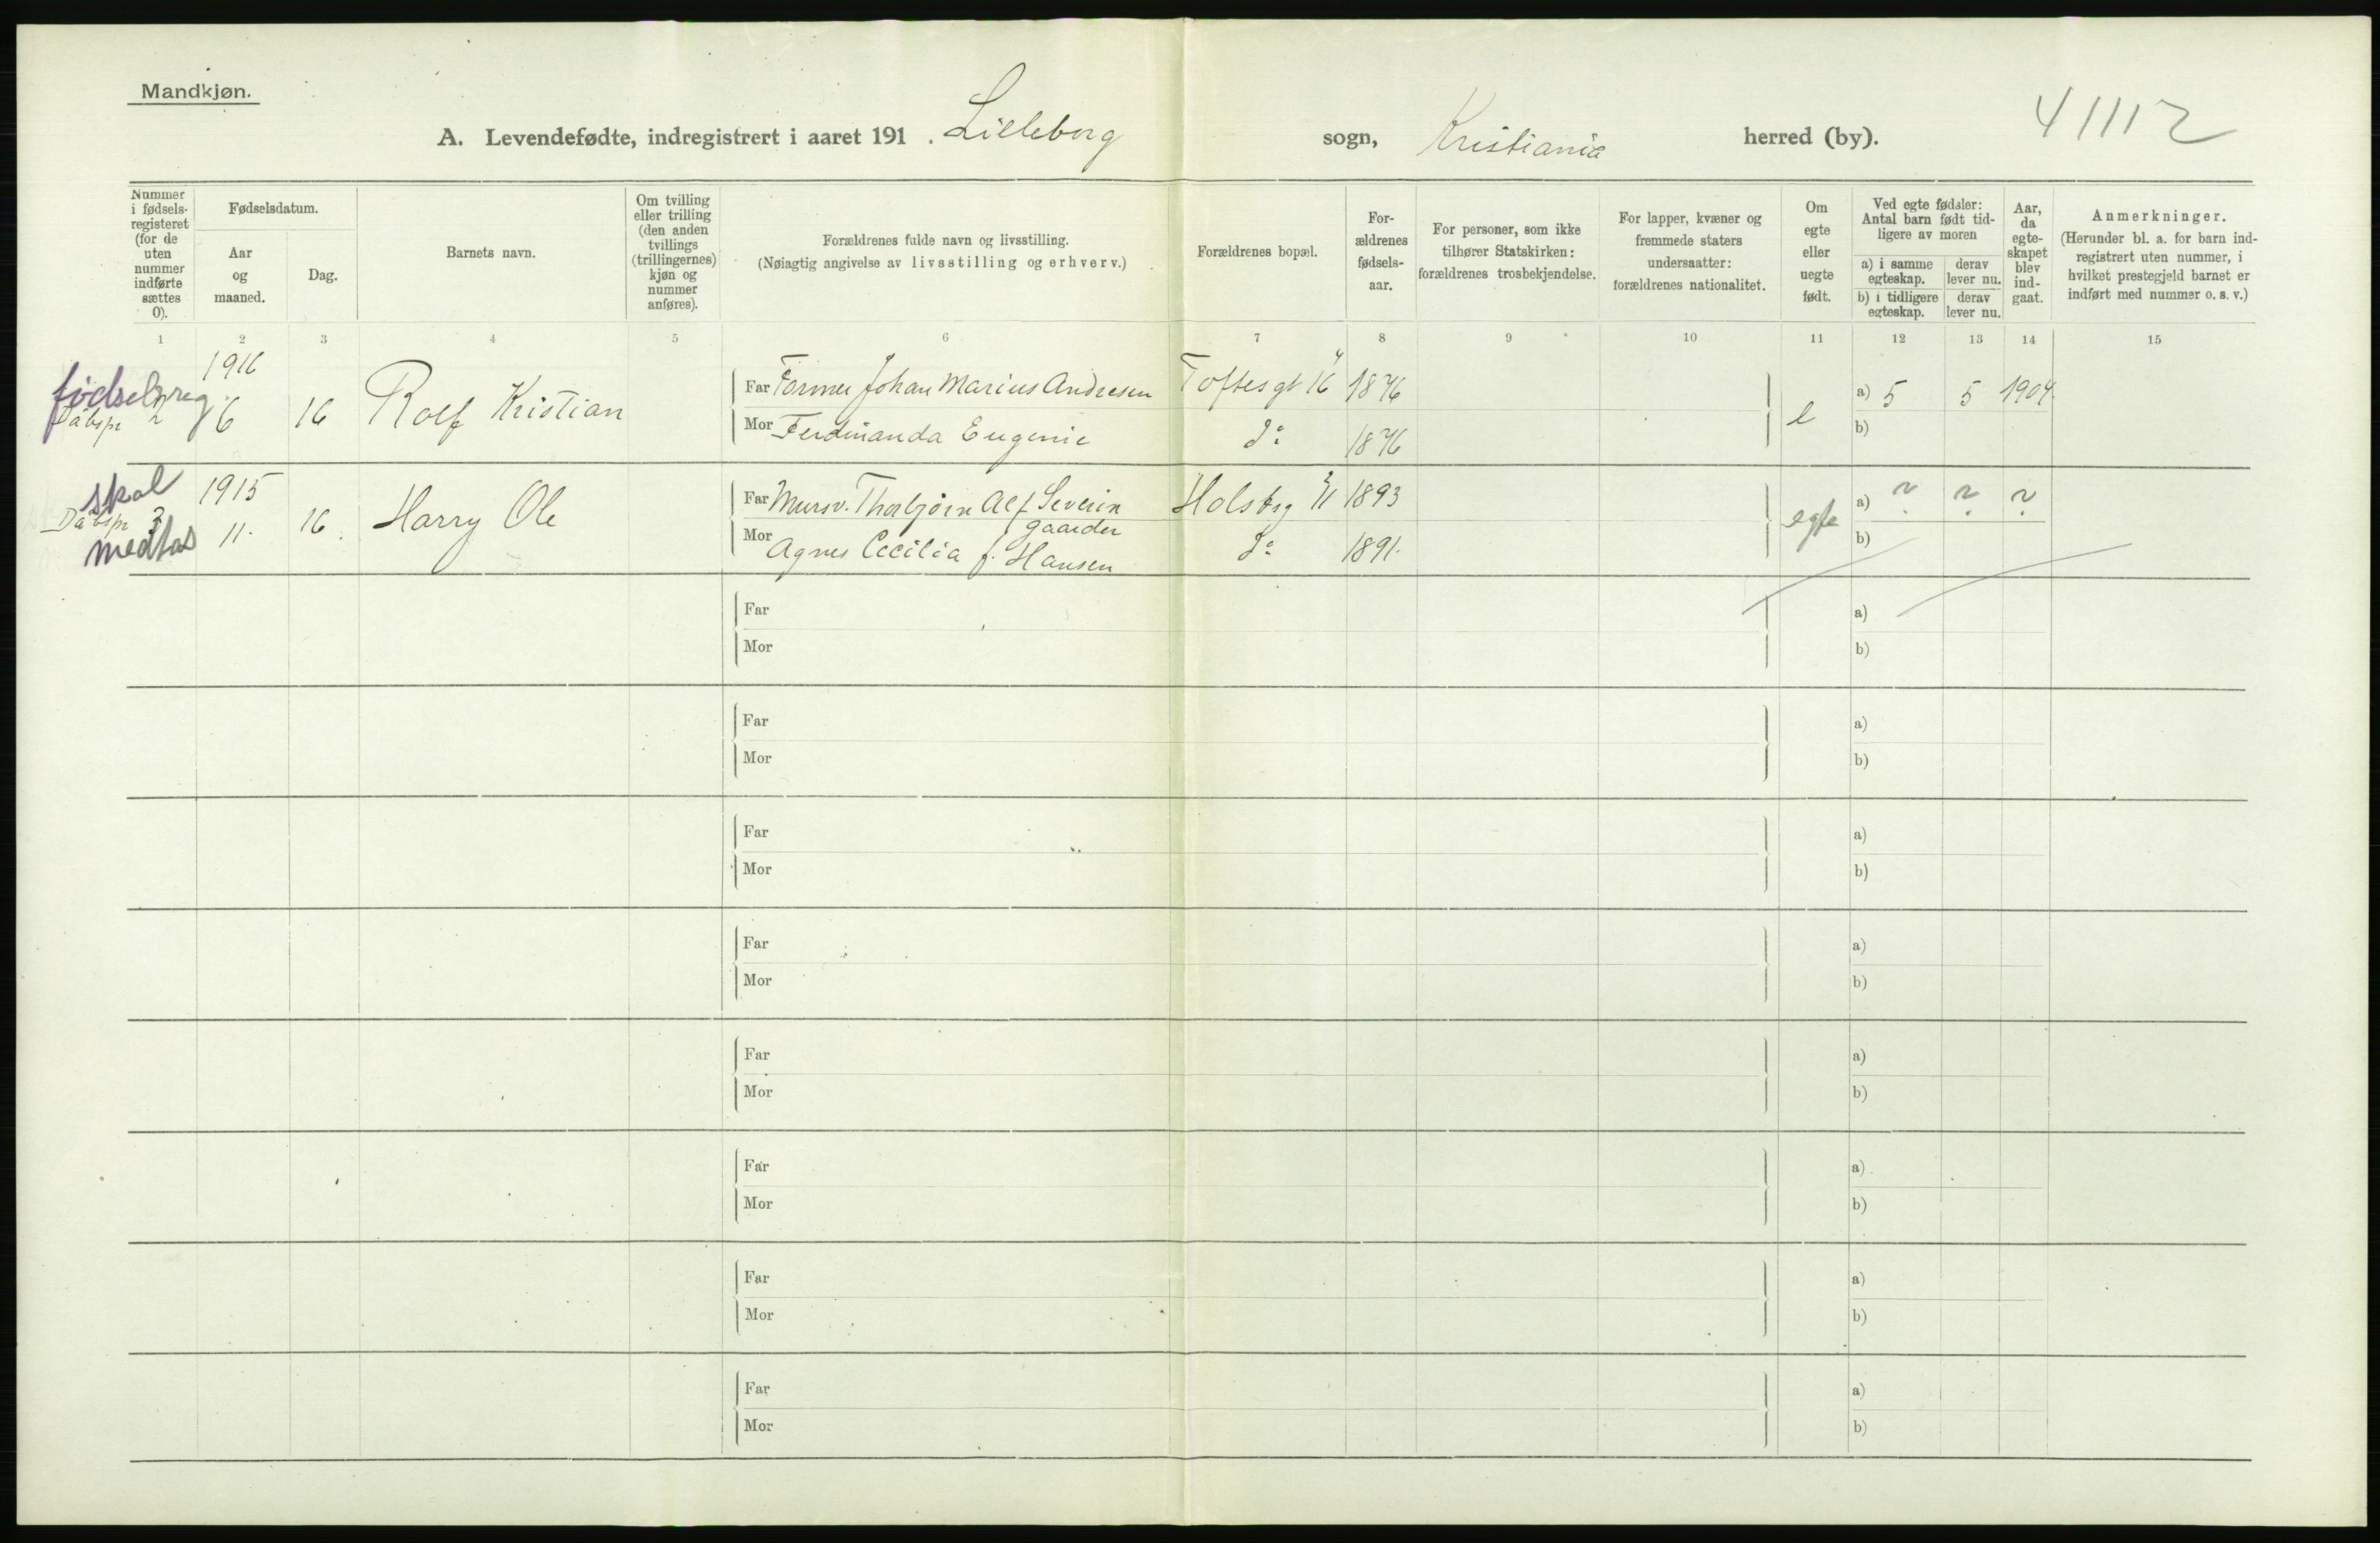 Mandkjøn.
A. Levendefødte, indregistrert i aaret 191 . Lilleborg sogn, Kristiania herred (by).
41112
Nummer i fødsels-registeret (for de uten nummer indførte sættes 0).
Fødselsdatum.
Aar og maaned.
Dag.
Barnets navn.
Om tvilling eller trilling (den anden tvillings (trillingernes) kjøn og nummer anføres).
Forældrenes fulde navn og livsstilling.
(Nøiagtig angivelse av livsstilling og erhverv.)
Forældrenes bopæl.
For-ældrenes fødsels-aar.
For personer, som ikke tilhører Statskirken: forældrenes trosbekjendelse.
For lapper, kvæner og fremmede staters undersaatter: forældrenes nationalitet.
Om egte eller uegte født.
Ved egte fødsler: Antal barn født tid-ligere av moren
a) i samme egteskap. derav lever nu.
b) i tidligere egteskap. derav lever nu.
Aar, da egte-skapet blev ind-gaat.
Anmerkninger.
(Herunder bl. a. for barn ind-registrert uten nummer, i hvilket prestegjeld barnet er indført med nummer o. s. v.)
1 2 3 4 5 6 7 8 9 10 11 12 13 14 15
fødselsreg.
Dåbspr 2
1916
6 16 Rolf Kristian
Far Former Johan Marius Andresen Toftesgt 16 1876
Mor Ferdinanda Eugenie do 1876
e
a) 5 5 1904.
b)
skal
Dåbspr 3
medtas
1915
11. 16. Harry Ole
Far Mursv. Thorbjørn Alf Severin gaarder Holsbg 1893
Mor Agnes Cecilia f. Hansen do 1891.
egte
a) ? ? ?
b)
Far a)
Mor b)
Far a)
Mor b)
Far a)
Mor b)
Far a)
Mor b)
Far a)
Mor b)
Far a)
Mor b)
Far a)
Mor b)
Far a)
Mor b)